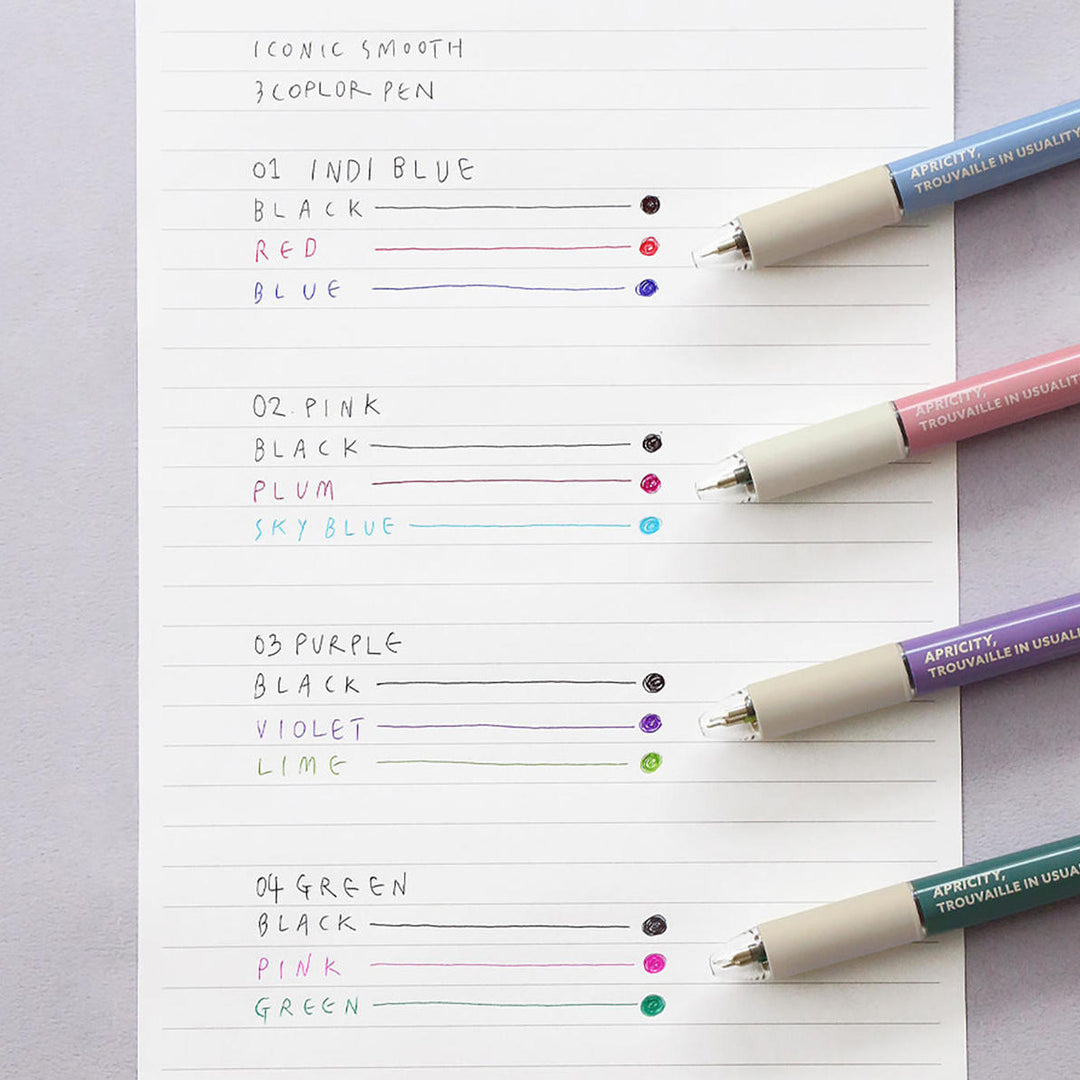 ICONIC SMOOTH
3 COPLOR PEN
01 INDI BLUE
BLACK
RED
BLUE
02. PINK
BLACK
PLUM
SKY BLUE
03 PURPLE
BLACK
VIOLET
LIME
04 GREEN
BLACK
PINK
GREEN
APRICITY,
TROUVAILLE IN USUALITY
APRICITY,
TROUVAILLE IN USUALIT
APRICITY,
TROUVAILLE IN USUALI
APRICITY,
TROUVAILLE IN USUA